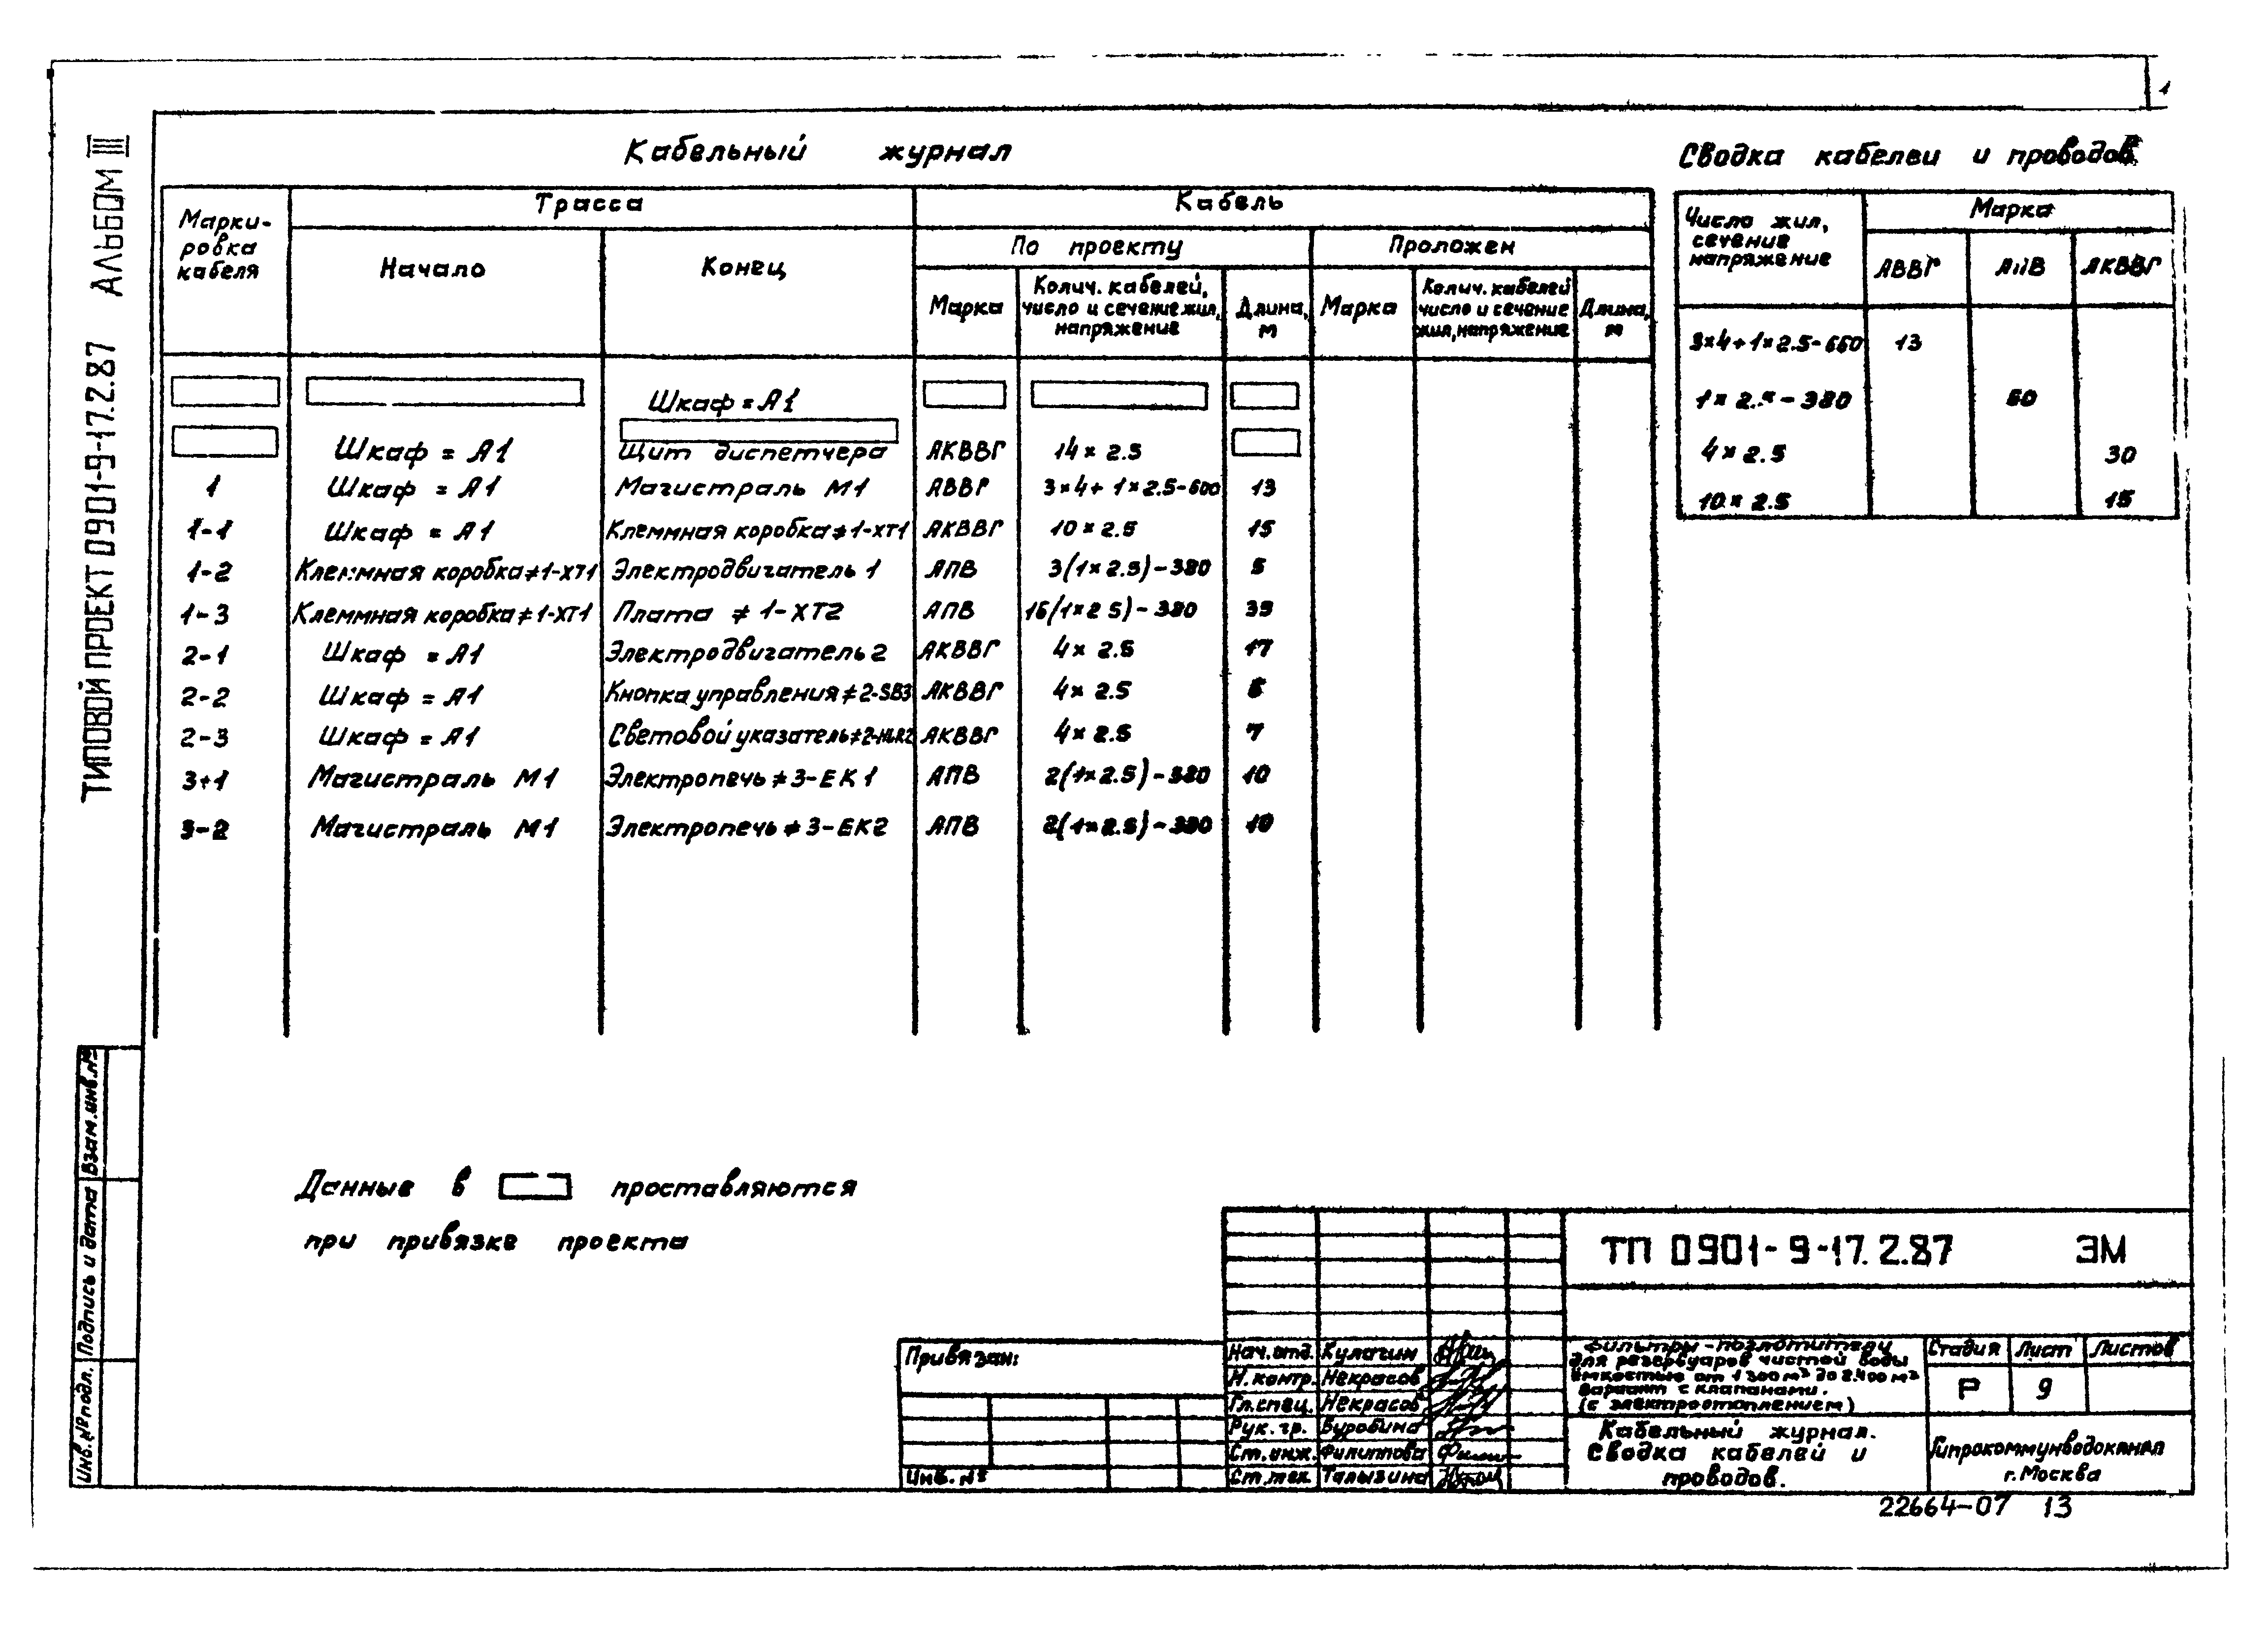 1
ТИПОВОЙ ПРОЕКТ 0901-9-17.2.87 АЛЬБОМ III
Кабельный журнал
Марки-
ровка
кабеля
Трасса
Кабель
Начало
Конец
По проекту
Проложен
Марка
Колич. кабелей,
число и сечение жил,
напряжение
Длина,
м
Марка
Колич. кабелей
число и сечение
жил, напряжение
Длина,
м
Шкаф = А1
Шкаф = А1 Щит диспетчера АКВВГ 14 × 2.5
1 Шкаф = А1 Магистраль М1 АВВГ 3×4+ 1×2.5-600 13
1-1 Шкаф = А1 Клеммная коробка ≠ 1-ХТ1 АКВВГ 10 × 2.5 15
1-2 Клеммная коробка ≠ 1-ХТ1 Электродвигатель 1 АПВ 3(1×2.5)-380 5
1-3 Клеммная коробка ≠ 1-ХТ1 Плата ≠ 1-ХТ2 АПВ (1×2 5)-380
2-1 Шкаф = А1 Электродвигатель 2 АКВВГ 4× 2.5 17
2-2 Шкаф = А1 Кнопка управления ≠ 2-SB3 АКВВГ 4× 2.5
2-3 Шкаф = А1 Световой указатель АКВВГ 4× 2.5 7
3+1 Магистраль М1 Электропечь ≠ 3-ЕК1 АПВ 2(1×2.5)-380 10
3-2 Магистраль М1 Электропечь ≠ 3-ЕК2 АПВ 2(1×2.5)-380 10
Сводка кабелей и проводов
Число жил,
сечение
напряжение
Марка
АВВГ АПВ АКВВГ
3×4+1×2.5-660 13
1× 2.5-380 60
4× 2.5 30
10× 2.5 15
Данные в проставляются
при привязке проекта
Взам.инв.№
Подпись и дата
Инв.№ подл.
Привязан:
Инв. №
Нач.отд. Кулагин
Н.контр. Некрасов
Гл.спец. Некрасов
Рук. гр. Буробина
Ст.инж. Филиппова
Ст.тех. Талызина
ТП 0901-9-17.2.87 ЭМ
Фильтры-поглотители
для резервуаров чистой воды
емкостью от 1300м³ до 2400м³
Вариант с клапанами.
(с электроотоплением)
Стадия Лист Листов
Р 9
Кабельный журнал.
Сводка кабелей и
проводов.
Гипрокоммунводоканал
г.Москва
22664-07 13